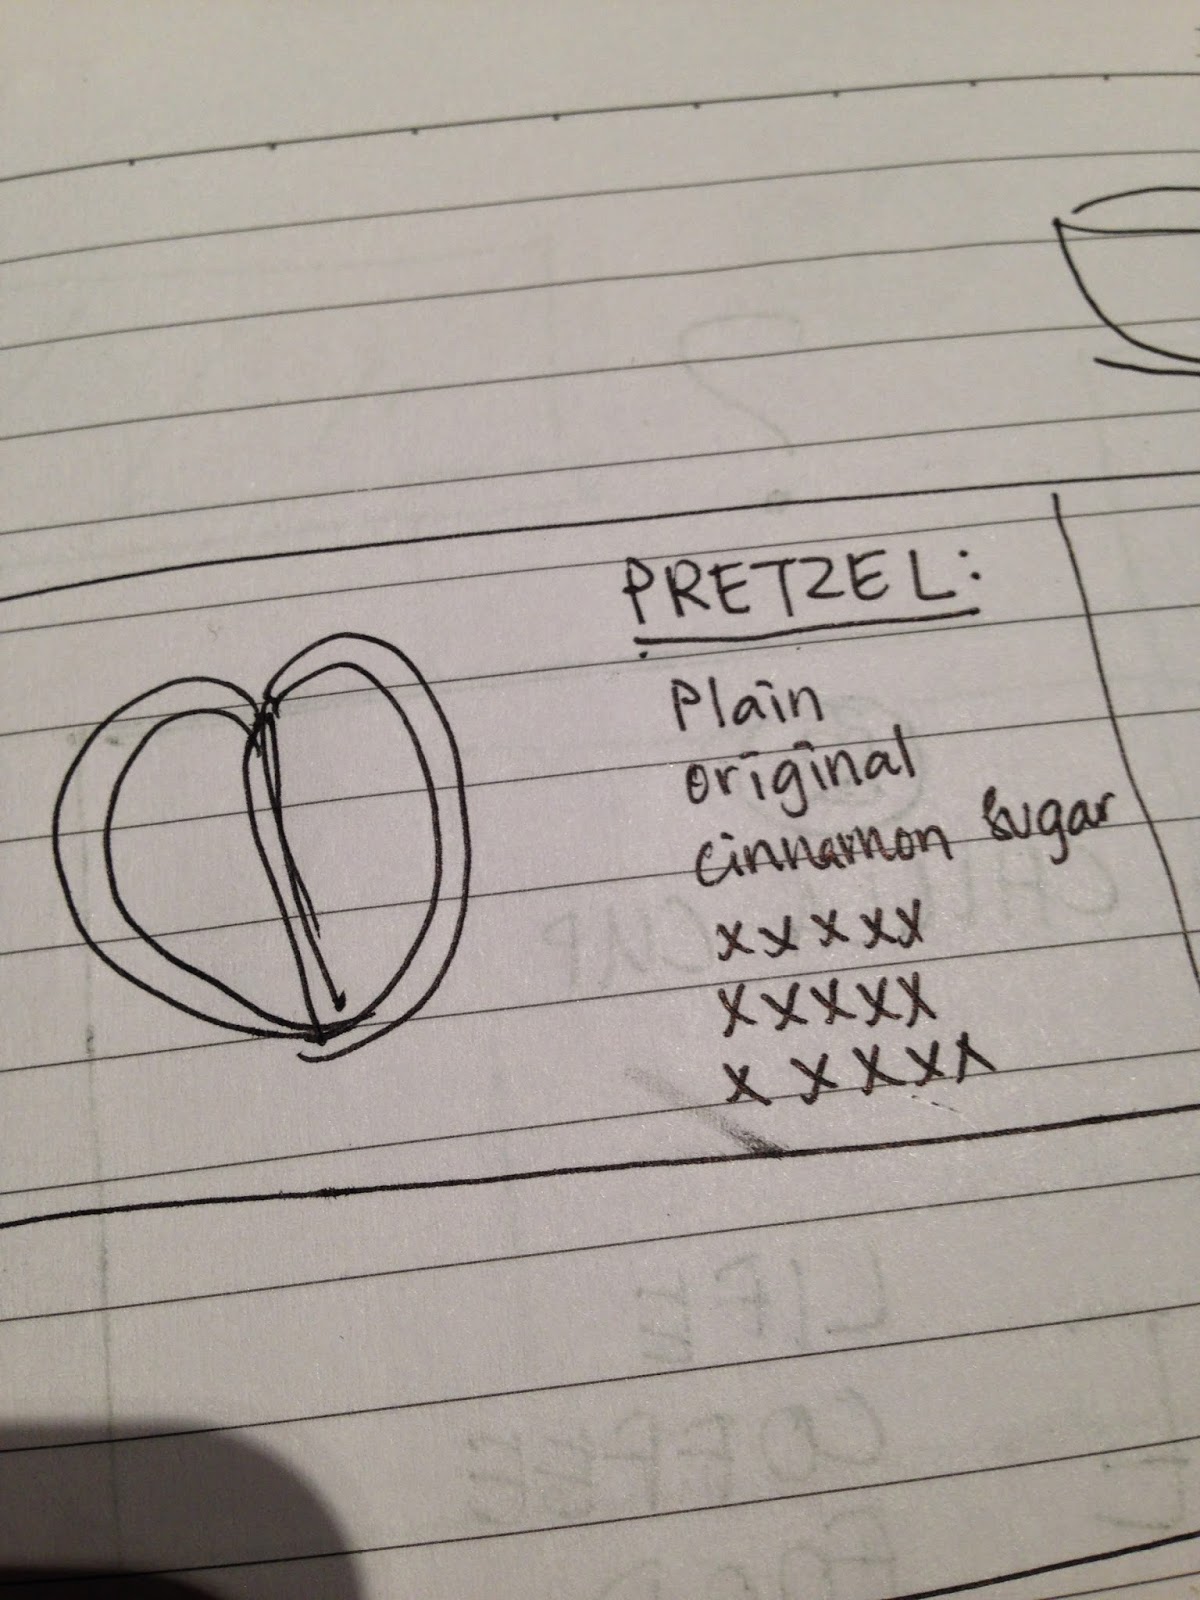 PRETZEL:
Plain
original
cinnamon sugar
xxxxx
xxxxx
xxxxx